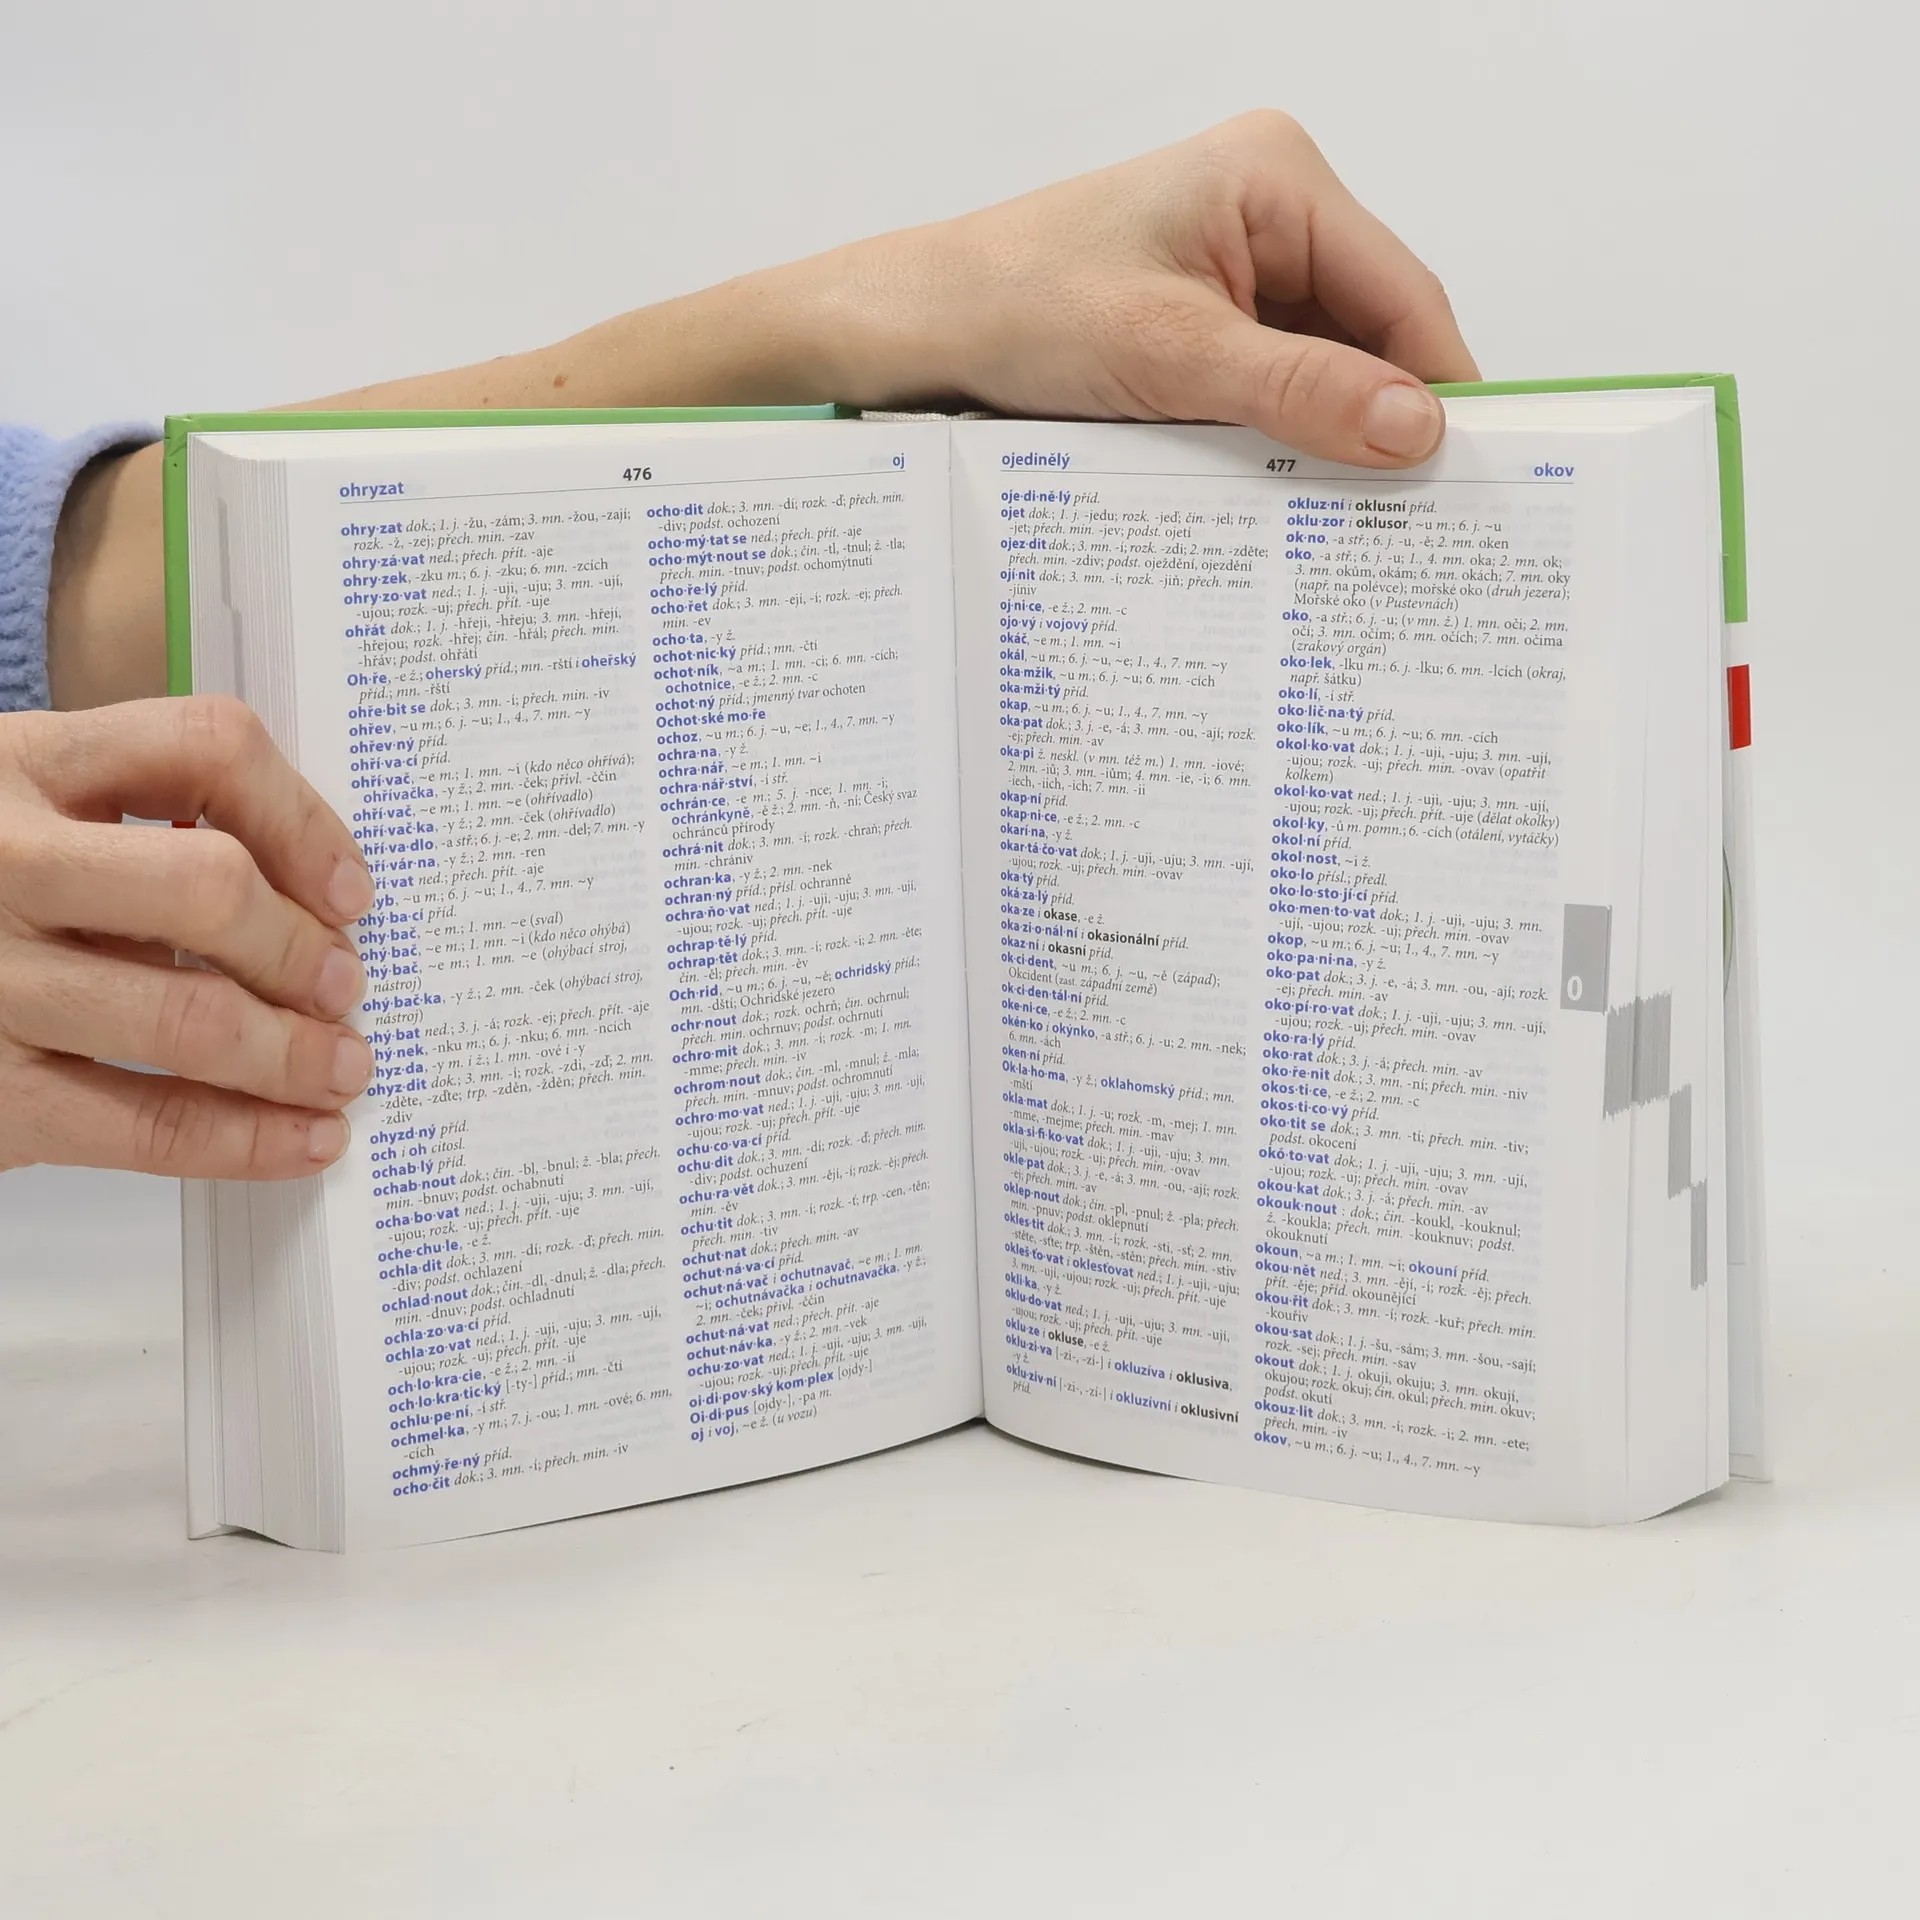 ohryzat
476
oj
ohry·zat dok.; 1. j. -žu, -zám; 3. mn. -žou, -zají;
rozk. -ž, -zej; přech. min. -zav
ohry·zá·vat ned.; přech. přít. -aje
ohry·zek, -zku m.; 6. j. -zku; 6. mn. -zcích
ohry·zo·vat ned.; 1. j. -uji, -uju; 3. mn. -ují,
-ujou; rozk. -uj; přech. přít. -uje
ohřát dok.; 1. j. -hřeji, -hřeju; 3. mn. -hřejí,
-hřejou; rozk. -hřej; čin. -hřál; přech. min.
-hřáv; podst. ohřátí
Oh·ře, -e ž.; oherský příd.; mn. -rští i oheřský
příd.; mn. -řští
ohře·bit se dok.; 3. mn. -í; přech. min. -iv
ohřev, ~u m.; 6. j. ~u; 1., 4., 7. mn. ~y
ohřev·ný příd.
ohří·va·cí příd.
ohří·vač, ~e m.; 1. mn. ~i (kdo něco ohřívá);
ohřívačka, -y ž.; 2. mn. -ček; přivl. -ččin
ohří·vač, ~e m.; 1. mn. ~e (ohřívadlo)
ohří·vač·ka, -y ž.; 2. mn. -ček (ohřívadlo)
hří·va·dlo, -a stř.; 6. j. -e; 2. mn. -del; 7. mn. -y
hří·vár·na, -y ž.; 2. mn. -ren
ří·vat ned.; přech. přít. -aje
yb, ~u m.; 6. j. ~u; 1., 4., 7. mn. ~y
ohý·ba·cí příd.
ohy·bač, ~e m.; 1. mn. ~e (sval)
ohý·bač, ~e m.; 1. mn. ~i (kdo něco ohýbá)
hý·bač, ~e m.; 1. mn. ~e (ohýbací stroj,
nástroj)
ohý·bač·ka, -y ž.; 2. mn. -ček (ohýbací stroj,
nástroj)
ohý·bat ned.; 3. j. -á; rozk. -ej; přech. přít. -aje
hý·nek, -nku m.; 6. j. -nku; 6. mn. -ncích
hyz·da, -y m. i ž.; 1. mn. -ové i -y
ohyz·dit dok.; 3. mn. -í; rozk. -zdi, -zď; 2. mn.
-zděte, -zďte; trp. -zděn, -žděn; přech. min.
-zdiv
ohyzd·ný příd.
och i oh citosl.
ochab·lý příd.
ochab·nout dok.; čin. -bl, -bnul; ž. -bla; přech.
min. -bnuv; podst. ochabnutí
ocha·bo·vat ned.; 1. j. -uji, -uju; 3. mn. -ují,
-ujou; rozk. -uj; přech. přít. -uje
oche·chu·le, -e ž.
ochla·dit dok.; 3. mn. -dí; rozk. -ď; přech. min.
-div; podst. ochlazení
ochlad·nout dok.; čin. -dl, -dnul; ž. -dla; přech.
min. -dnuv; podst. ochladnutí
ochla·zo·va·cí příd.
ochla·zo·vat ned.; 1. j. -uji, -uju; 3. mn. -ují,
-ujou; rozk. -uj; přech. přít. -uje
och·lo·kra·cie, -e ž.; 2. mn. -ií
och·lo·kra·tic·ký [-ty-] příd.; mn. -čtí
ochlu·pe·ní, -í stř.
ochmel·ka, -y m.; 7. j. -ou; 1. mn. -ové; 6. mn.
-cích
ochmý·ře·ný příd.
ocho·čit dok.; 3. mn. -í; přech. min. -iv
ocho·dit dok.; 3. mn. -dí; rozk. -ď; přech. min.
-div; podst. ochození
ocho·mý·tat se ned.; přech. přít. -aje
ocho·mýt·nout se dok.; čin. -tl, -tnul; ž. -tla;
přech. min. -tnuv; podst. ochomýtnutí
ocho·ře·lý příd.
ocho·řet dok.; 3. mn. -ejí, -í; rozk. -ej; přech.
min. -ev
ocho·ta, -y ž.
ochot·nic·ký příd.; mn. -čtí
ochot·ník, ~a m.; 1. mn. -ci; 6. mn. -cích;
ochotnice, -e ž.; 2. mn. -c
ochot·ný příd.; jmenný tvar ochoten
Ochot·ské mo·ře
ochoz, ~u m.; 6. j. ~u, ~e; 1., 4., 7. mn. ~y
ochra·na, -y ž.
ochra·nář, ~e m.; 1. mn. ~i
ochra·nář·ství, -í stř.
ochrán·ce, -e m.; 5. j. -nce; 1. mn. -i;
ochránkyně, -ě ž.; 2. mn. -ň, -ní; Český svaz
ochránců přírody
ochrá·nit dok.; 3. mn. -í; rozk. -chraň; přech.
min. -chrániv
ochran·ka, -y ž.; 2. mn. -nek
ochran·ný příd.; přísl. ochranně
ochra·ňo·vat ned.; 1. j. -uji, -uju; 3. mn. -ují,
-ujou; rozk. -uj; přech. přít. -uje
ochrap·tě·lý příd.
ochrap·tět dok.; 3. mn. -í; rozk. -i; 2. mn. -ěte;
čin. -ěl; přech. min. -ěv
Och·rid, ~u m.; 6. j. ~u, ~ě; ochridský příd.;
mn. -dští; Ochridské jezero
ochr·nout dok.; rozk. ochrň; čin. ochrnul;
přech. min. ochrnuv; podst. ochrnutí
ochro·mit dok.; 3. mn. -í; rozk. -m; 1. mn.
-mme; přech. min. -iv
ochrom·nout dok.; čin. -ml, -mnul; ž. -mla;
přech. min. -mnuv; podst. ochromnutí
ochro·mo·vat ned.; 1. j. -uji, -uju; 3. mn. -ují,
-ujou; rozk. -uj; přech. přít. -uje
ochu·co·va·cí příd.
ochu·dit dok.; 3. mn. -dí; rozk. -ď; přech. min.
-div; podst. ochuzení
ochu·ra·vět dok.; 3. mn. -ějí, -í; rozk. -ěj; přech.
min. -ěv
ochu·tit dok.; 3. mn. -í; rozk. -ť; trp. -cen, -těn;
přech. min. -tiv
ochut·nat dok.; přech. min. -av
ochut·ná·va·cí příd.
ochut·ná·vač i ochutnavač, ~e m.; 1. mn.
~i; ochutnávačka i ochutnavačka, -y ž.;
2. mn. -ček; přivl. -ččin
ochut·ná·vat ned.; přech. přít. -aje
ochut·náv·ka, -y ž.; 2. mn. -vek
ochu·zo·vat ned.; 1. j. -uji, -uju; 3. mn. -ují,
-ujou; rozk. -uj; přech. přít. -uje
oi·di·pov·ský kom·plex [ojdy-]
Oi·di·pus [ojdy-], -pa m.
oj i voj, ~e ž. (u vozu)
ojedinělý
477
okov
oje·di·ně·lý příd.
ojet dok.; 1. j. -jedu; rozk. -jeď; čin. -jel; trp.
-jet; přech. min. -jev; podst. ojetí
ojez·dit dok.; 3. mn. -í; rozk. -zdi; 2. mn. -zděte;
přech. min. -zdiv; podst. oježdění, ojezdění
ojí·nit dok.; 3. mn. -í; rozk. -jiň; přech. min.
-jíniv
oj·ni·ce, -e ž.; 2. mn. -c
ojo·vý i vojový příd.
okáč, ~e m.; 1. mn. ~i
okál, ~u m.; 6. j. ~u, ~e; 1., 4., 7. mn. ~y
oka·mžik, ~u m.; 6. j. ~u; 6. mn. -cích
oka·mži·tý příd.
okap, ~u m.; 6. j. ~u; 1., 4., 7. mn. ~y
oka·pat dok.; 3. j. -e, -á; 3. mn. -ou, -ají; rozk.
-ej; přech. min. -av
oka·pi ž. neskl. (v mn. též m.) 1. mn. -iové;
2. mn. -iů; 3. mn. -iům; 4. mn. -ie, -i; 6. mn.
-iech, -iích, -ich; 7. mn. -ii
okap·ní příd.
okap·ni·ce, -e ž.; 2. mn. -c
okarí·na, -y ž.
okar·tá·čo·vat dok.; 1. j. -uji, -uju; 3. mn. -ují,
-ujou; rozk. -uj; přech. min. -ovav
oka·tý příd.
oká·za·lý příd.
oka·ze i okase, -e ž.
oka·zi·o·nál·ní i okasionální příd.
okaz·ní i okasní příd.
ok·ci·dent, ~u m.; 6. j. ~u, ~ě (západ);
Okcident (zast. západní země)
ok·ci·den·tál·ní příd.
oke·ni·ce, -e ž.; 2. mn. -c
okén·ko i okýnko, -a stř.; 6. j. -u; 2. mn. -nek;
6. mn. -ách
oken·ní příd.
Ok·la·ho·ma, -y ž.; oklahomský příd.; mn.
-mští
okla·mat dok.; 1. j. -u; rozk. -m, -mej; 1. mn.
-mme, -mejme; přech. min. -mav
okla·si·fi·ko·vat dok.; 1. j. -uji, -uju; 3. mn.
-ují, -ujou; rozk. -uj; přech. min. -ovav
okle·pat dok.; 3. j. -e, -á; 3. mn. -ou, -ají; rozk.
-ej; přech. min. -av
oklep·nout dok.; čin. -pl, -pnul; ž. -pla; přech.
min. -pnuv; podst. oklepnutí
okles·tit dok.; 3. mn. -í; rozk. -sti, -sť; 2. mn.
-stěte, -sťte; trp. -štěn, -stěn; přech. min. -stiv
okleš·ťo·vat i oklesťovat ned.; 1. j. -uji, -uju;
3. mn. -ují, -ujou; rozk. -uj; přech. přít. -uje
okli·ka, -y ž.
oklu·do·vat ned.; 1. j. -uji, -uju; 3. mn. -ují,
-ujou; rozk. -uj; přech. přít. -uje
oklu·ze i okluse, -e ž.
oklu·zi·va [-zi-, -zí-] i okluzíva i oklusiva,
-y ž.
oklu·ziv·ní [-zi-, -zí-] i okluzívní i oklusivní
příd.
okluz·ní i oklusní příd.
oklu·zor i oklusor, ~u m.; 6. j. ~u
ok·no, -a stř.; 6. j. -u, -ě; 2. mn. oken
oko, -a stř.; 6. j. -u; 1., 4. mn. oka; 2. mn. ok;
3. mn. okům, okám; 6. mn. okách; 7. mn. oky
(např. na polévce); mořské oko (druh jezera);
Mořské oko (v Pustevnách)
oko, -a stř.; 6. j. -u; (v mn. ž.) 1. mn. oči; 2. mn.
očí; 3. mn. očím; 6. mn. očích; 7. mn. očima
(zrakový orgán)
oko·lek, -lku m.; 6. j. -lku; 6. mn. -lcích (okraj,
např. šátku)
oko·lí, -í stř.
oko·lič·na·tý příd.
oko·lík, ~u m.; 6. j. ~u; 6. mn. -cích
okol·ko·vat dok.; 1. j. -uji, -uju; 3. mn. -ují,
-ujou; rozk. -uj; přech. min. -ovav (opatřit
kolkem)
okol·ko·vat ned.; 1. j. -uji, -uju; 3. mn. -ují,
-ujou; rozk. -uj; přech. přít. -uje (dělat okolky)
okol·ky, -ů m. pomn.; 6. -cích (otálení, vytáčky)
okol·ní příd.
okol·nost, ~i ž.
oko·lo přísl.; předl.
oko·lo·sto·jí·cí příd.
oko·men·to·vat dok.; 1. j. -uji, -uju; 3. mn.
-ují, -ujou; rozk. -uj; přech. min. -ovav
okop, ~u m.; 6. j. ~u; 1., 4., 7. mn. ~y
oko·pa·ni·na, -y ž.
oko·pat dok.; 3. j. -e, -á; 3. mn. -ou, -ají; rozk.
-ej; přech. min. -av
oko·pí·ro·vat dok.; 1. j. -uji, -uju; 3. mn. -ují,
-ujou; rozk. -uj; přech. min. -ovav
oko·ra·lý příd.
oko·rat dok.; 3. j. -á; přech. min. -av
oko·ře·nit dok.; 3. mn. -ní; přech. min. -niv
okos·ti·ce, -e ž.; 2. mn. -c
okos·ti·co·vý příd.
oko·tit se dok.; 3. mn. -tí; přech. min. -tiv;
podst. okocení
okó·to·vat dok.; 1. j. -uji, -uju; 3. mn. -ují,
-ujou; rozk. -uj; přech. min. -ovav
okou·kat dok.; 3. j. -á; přech. min. -av
okouk·nout : dok.; čin. -koukl, -kouknul;
ž. -koukla; přech. min. -kouknuv; podst.
okouknutí
okoun, ~a m.; 1. mn. ~i; okouní příd.
okou·nět ned.; 3. mn. -ějí, -í; rozk. -ěj; přech.
přít. -ěje; příd. okounějící
okou·řit dok.; 3. mn. -í; rozk. -kuř; přech. min.
-kouřiv
okou·sat dok.; 1. j. -šu, -sám; 3. mn. -šou, -sají;
rozk. -sej; přech. min. -sav
okout dok.; 1. j. okuji, okuju; 3. mn. okují,
okujou; rozk. okuj; čin. okul; přech. min. okuv;
podst. okutí
okouz·lit dok.; 3. mn. -í; rozk. -i; 2. mn. -ete;
přech. min. -iv
okov, ~u m.; 6. j. ~u; 1., 4., 7. mn. ~y
O